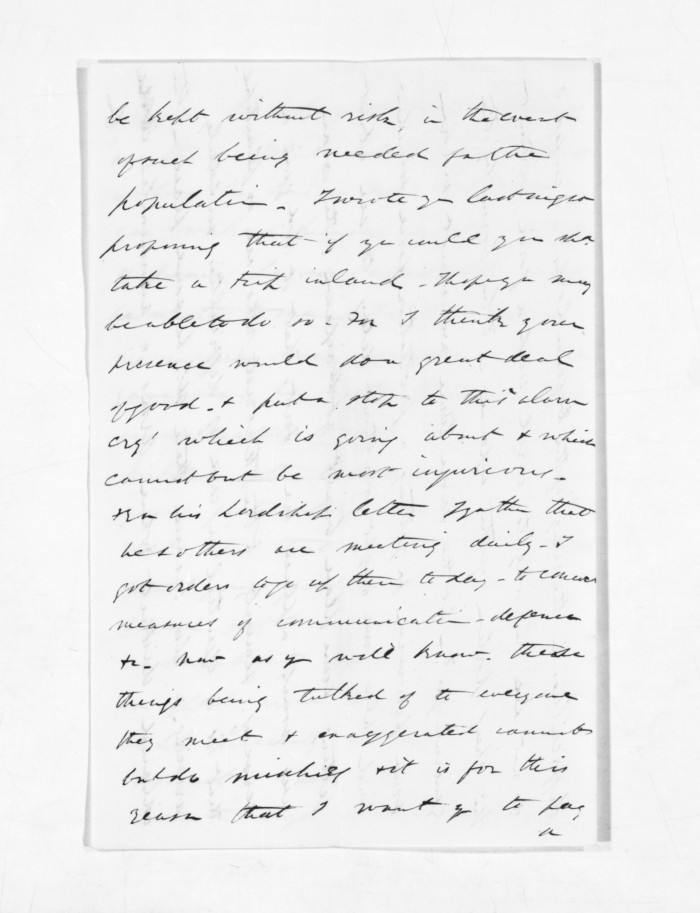 be kept without risk, in the event
of such being needed for the
population - I wrote you last night
proposing that if you could you shd.
take a trip inland - I hope you may
be able to do so - for I think your
presence would do a great deal
of good - & put a stop to this "alarm
cry" which is going about & which
cannot but be most injurious -
his Lordship letter I gather that
he & others are meeting daily - I
got orders to go up there today - to concert
measures of communication - defence
&c - now as you will know - these
things being talked of to everyone
they meet & exaggerated cannot
but do mischief & it is for this
reason that I want you to pay
a